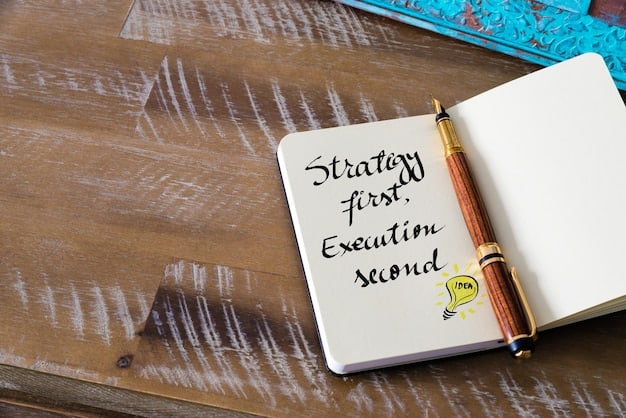 Strategy
first,
Execution
second
IDEA